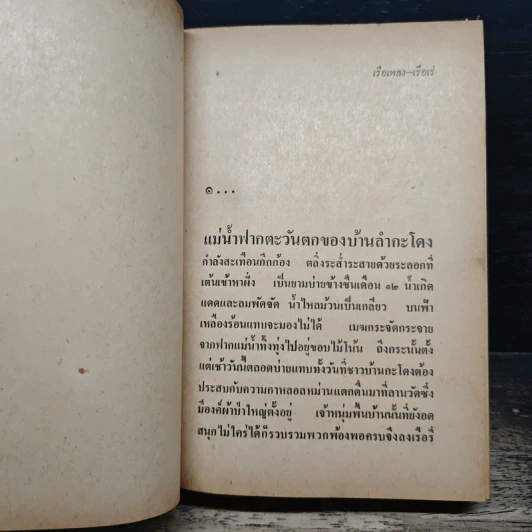 เรือเพลง-เรือเร่
๑...
แม่น้ำฟากตะวันตกของบ้านลำกะโดง
กำลังสะเทือนกึกก้อง ตลิ่งระส่ำระสายด้วยระลอกที่
เต้นเข้าหาฝั่ง เป็นยามบ่ายข้างขึ้นเดือน ๑๒ น้ำเกิด
แดดและลมพัดจัด น้ำไหลม้วนเป็นเกลียว บนฟ้า
เหลืองร้อนแทบจะมองไม่ได้ เมฆกระจัดกระจาย
จากฟากแม่น้ำทิ้งทุ่งไปอยู่ขอบไม้โน้น ถึงกระนั้นตั้ง
แต่เช้าวันนี้ตลอดบ่ายแทบทั้งวันที่ชาวบ้านกะโดงต้อง
ประสบกับความกาหลอลหม่านแตกตื่นมาที่ลานวัดซึ่ง
มีองค์ผ้าป่าใหญ่ตั้งอยู่ เจ้าหนุ่มพื้นบ้านนั้นที่ยังอด
สนุกไม่ใคร่ได้ก็รวบรวมพวกพ้องพอครบจึงลงเรือรี่